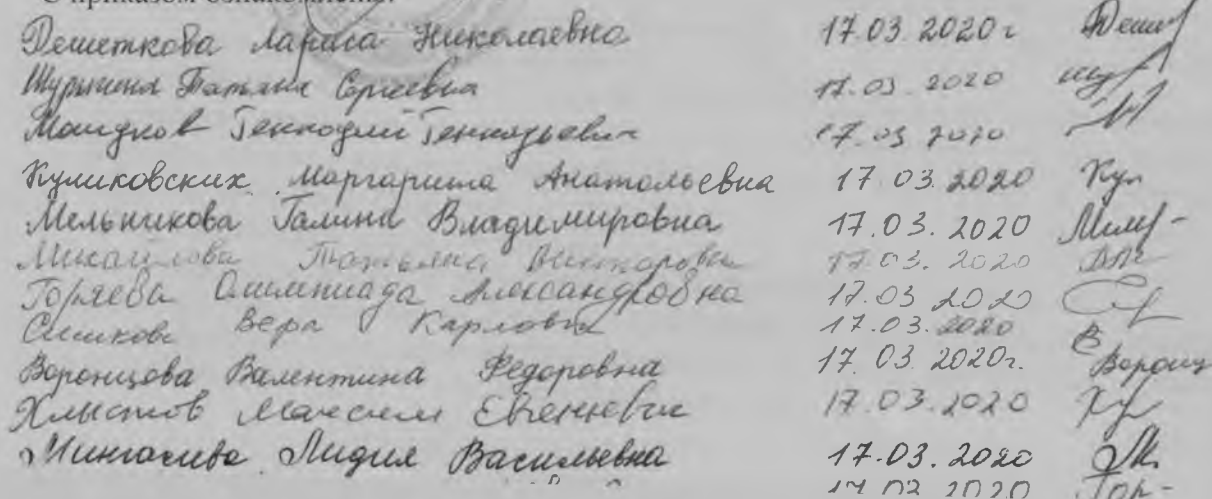 С приказом ознакомлены:
Дешеткова Лариса Николаевна 17.03.2020г Деш
Татьяна Сергеевна 17.03.2020
Геннадий Геннадьевич 17.03.2020
Куликовских Маргарита Анатольевна 17.03.2020 Кул
Мельникова Галина Владимировна 17.03.2020
Татьяна Викторовна 17.03.2020
Горяева Олимпиада Александровна 17.03.2020
Сишкова Вера Карловна 17.03.2020
Воронцова Валентина Федоровна 17.03.2020г. Воронц
Хлыстов Максим Евгеньевич 17.03.2020
Мингалева Лидия Васильевна 17.03.2020
2020 Гор-